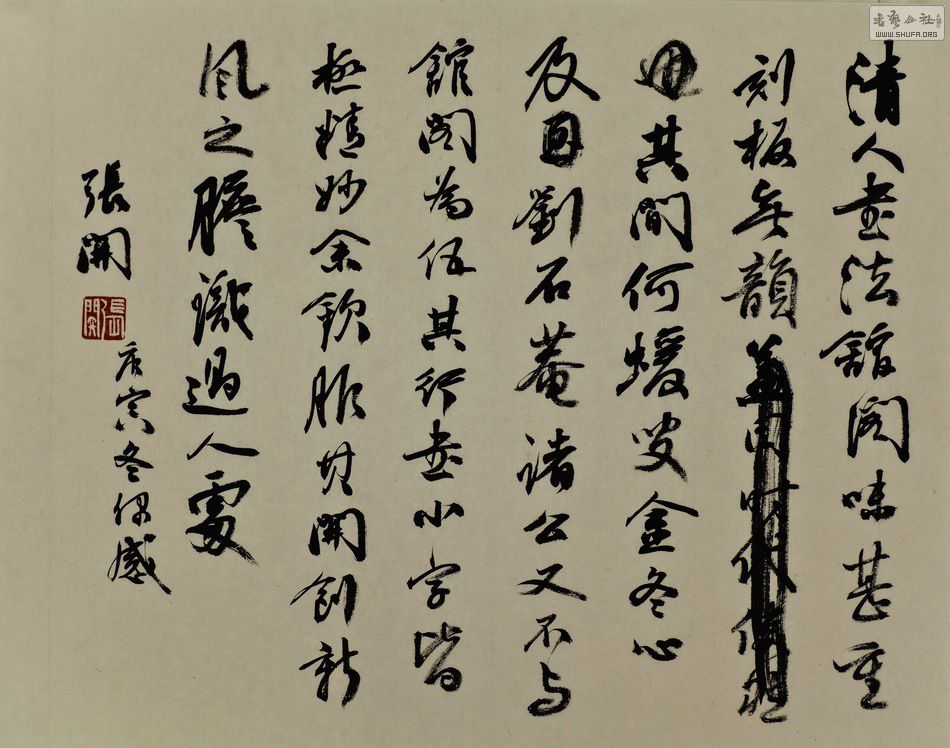 清人書法館閣味甚重
刻板無韻
其間何蝯叟金冬心
及劉石菴諸公又不与
館閣為伍其行書小字皆
極精妙余欽服其開創新
風之膽識過人處
張開
張開
庚寅冬偶感
書藝公社
WWW.SHUFA.ORG